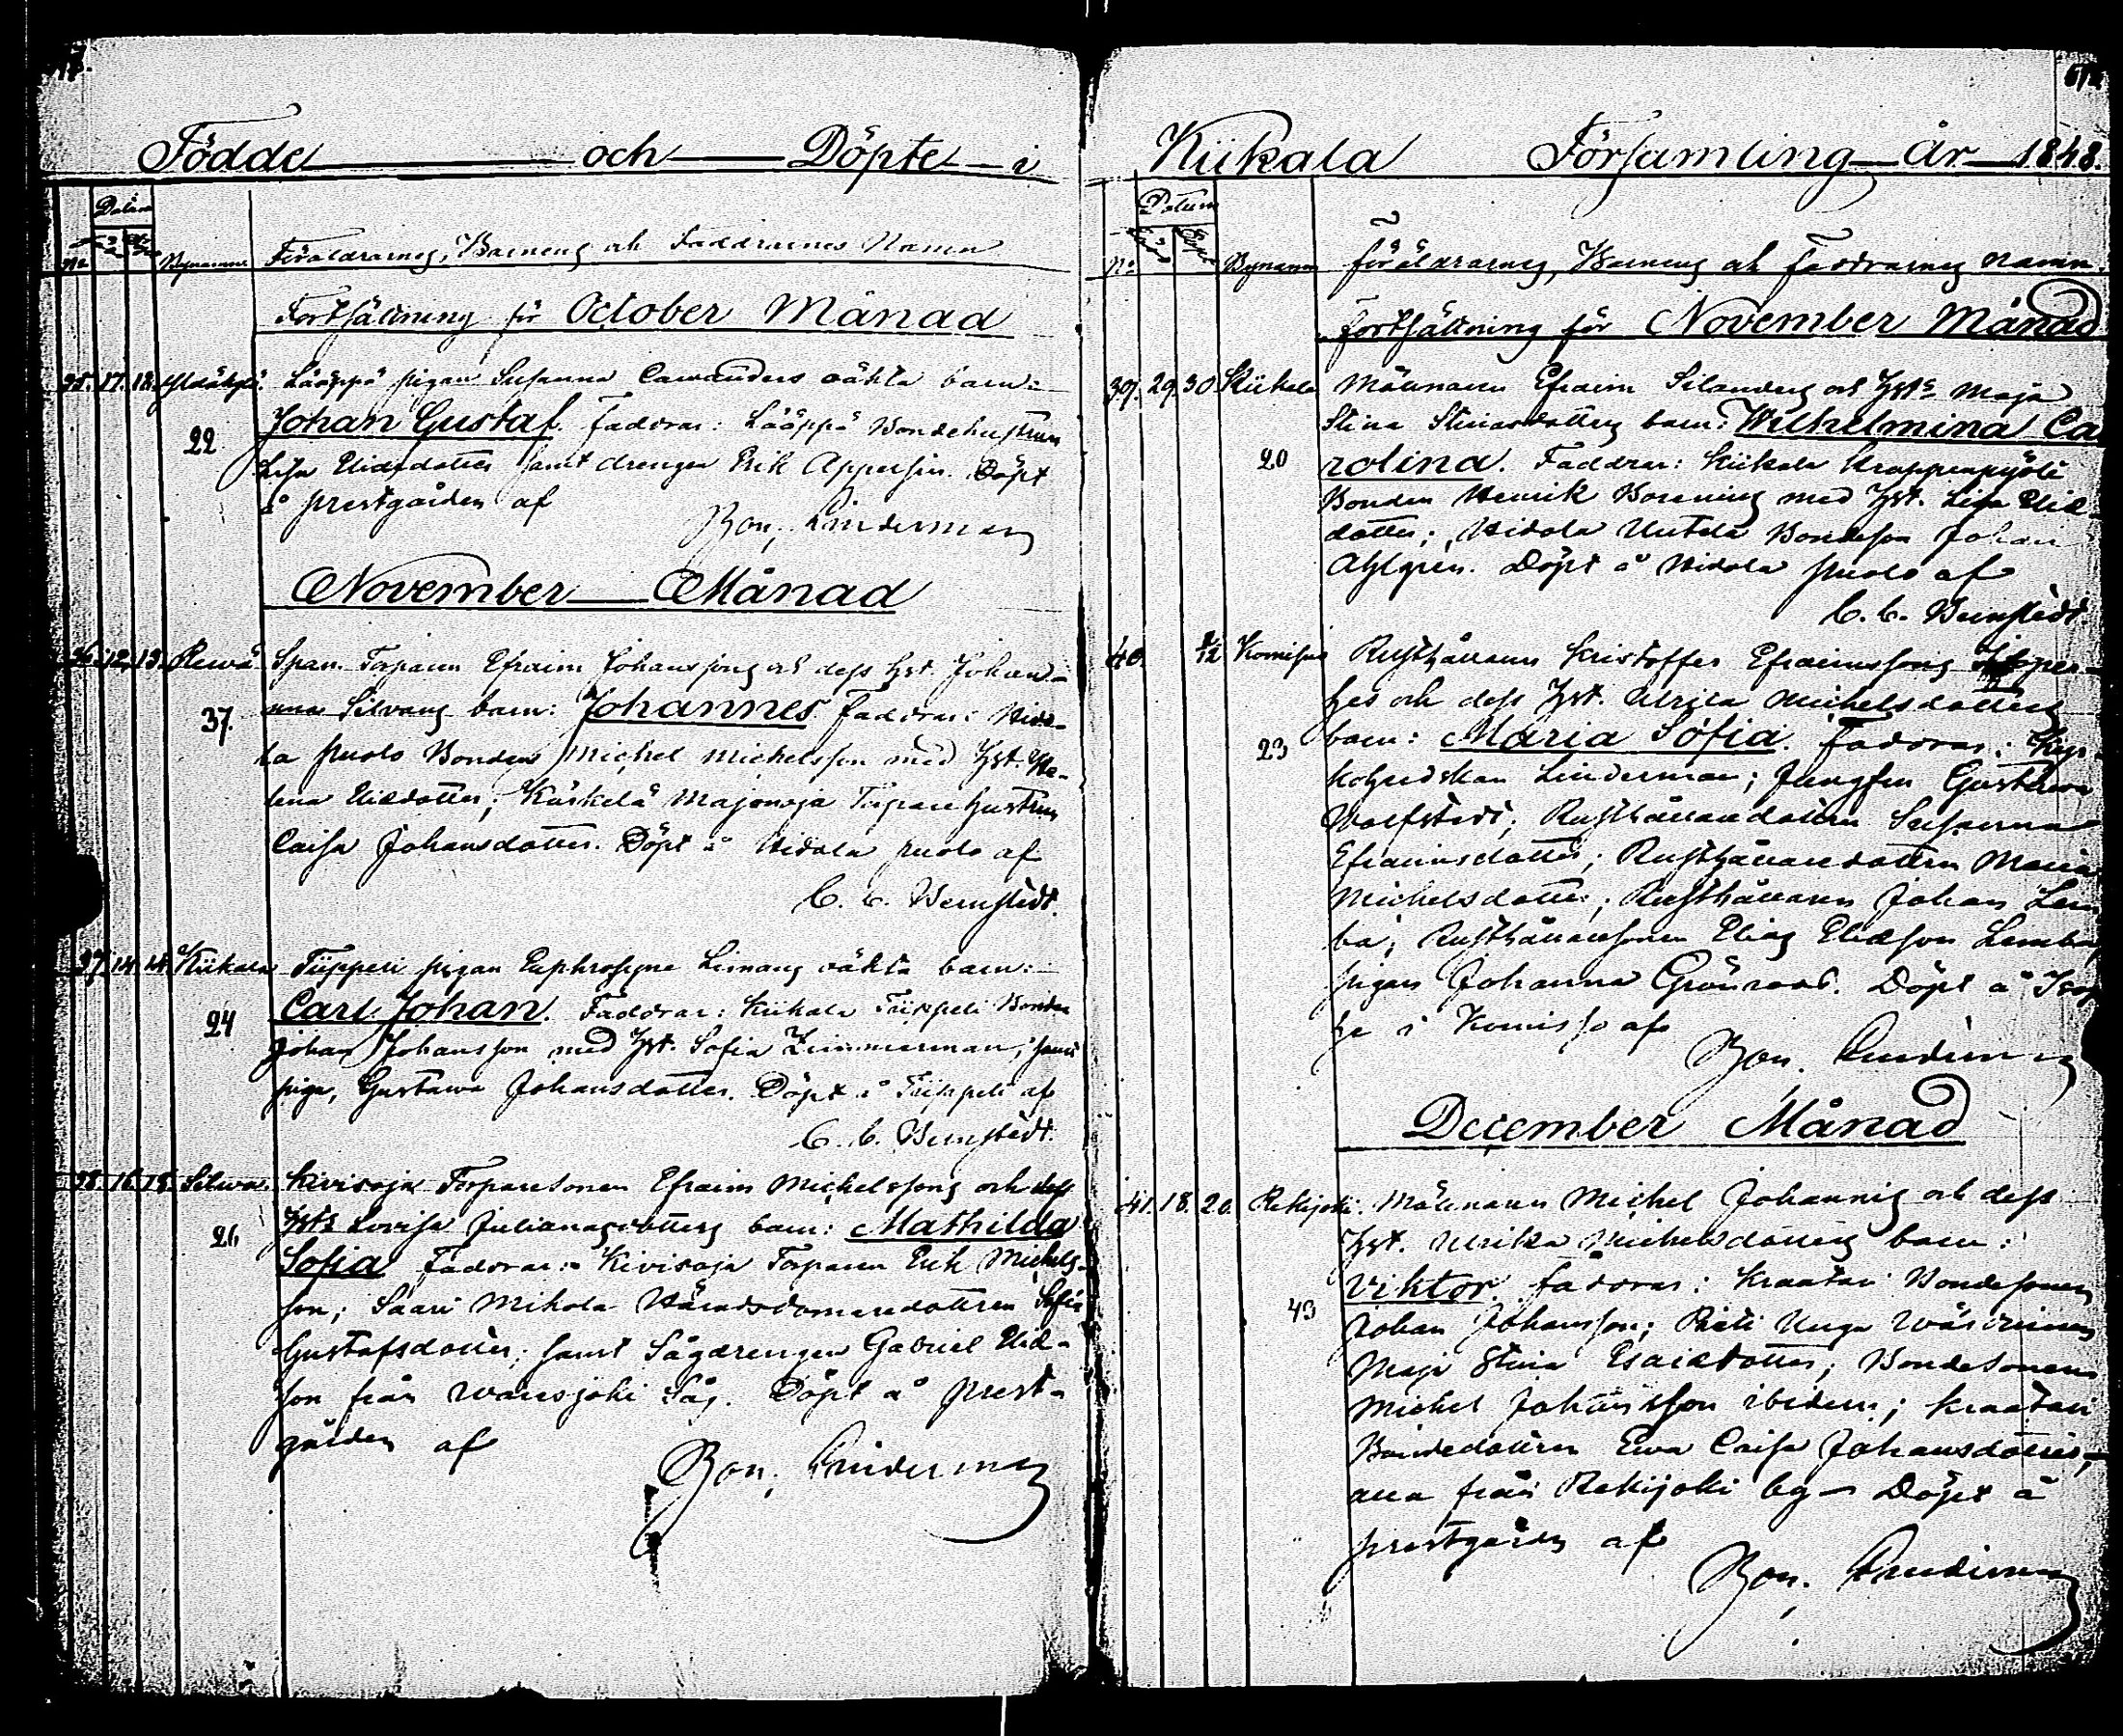 Födde och Döpte i
Datum
No Bynamn Föräldrarnes, Barnens och Faddrarnes Namn
Fortsättning för October Månad
35. 17. 18. Lääppä pigan Susanna Cawanders oäkta barn:
Johan Gustaf. Faddrar: Lääppä Bondehustrun
22
Lisa Eliædotter samt drengen Erik Appersin. Döpt
å prestgården af
Bon. Linderman
November Månad
36. 12. 13. Rewä Span. Torparen Efraim Johanssons och dess hst. Johan-
na Silvans barn: Johannes. Faddrar: Hido-
37.
la puolo Bonden Michel Michelsson med hst. He-
lena Eliædotter; Käskelä Majanoja Torpare hustrun
Caisa Johansdotter. Döpt å Hidola puolo af
C. C. Bernstedt.
37. 14. 14. Kiikala Tiippeli pigan Euphrosyne Limans oäkta barn:
Carl Johan. Faddrar: Kiikala Tiippeli Bonden
24
Johan Johansson med hst. Sofia Zimmerman; samt
pigan Gustawa Johansdotter. Döpt å Tiippeli af
C. C. Bernstedt.
38. 16. 18. Kivioja Torparesonen Efraim Michelssons och dess
hst. Lovisa Julianasdotters barn: Mathilda
26
Sofia. Faddrar: Kivioja Torparen Erik Michels-
son; Saari Mikola Häradsdomaredottren Sofia
Gustafsdotter; samt Sågdrengen Gabriel Eliæ-
son från Warisjoki Såg. Döpt å prest-
gården af
Bon. Linderman
Kiikala Församling år 1848.
Datum
No Bynamn Föräldrarnes, Barnens och Faddrarnes namn.
Fortsättning för November Månad
39. 29. 30. Kiikala Målnaren Efraim Silanders och hst. Maja
Stina Stinasdotters barn: Wilhelmina Ca
20 rolina. Faddrar: Kiikala
Bonden Henrik Borenius med hst. Lisa Eliæ-
dotter; Hidola Uutela Bondeson Johan
Ahlgrén. Döpt å Hidola puolo af
C. C. Bernstedt.
40. 2/12 Rusthållaren Kristoffer Efraimssons
hes och dess hst. Ulrica Michelsdotters
23 barn: Maria Sofia. Faddrar:
Linderman; Jungfru Gustawa
Wolfstedt; Rusthållaredottren Susanna
Efraimsdotter; Rusthållaredottren Maria
Michelsdotter; Rusthållaren Johan Lem
ba; Rusthållaresonen Elias Eliæson Lemba
pigan Johanna Grönroos. Döpt å Isop
he i Komisso af
Bon. Linderman
December Månad
41. 18. 20. Rekijoki. Målnaren Michel Johannis och dess
hst. Ulrika Michelsdotters barn:
Viktor. Faddrar: Kraatari Bondesonen
43
Johan Johansson; Unga Wärdinnan
Maja Stina Esaiædotter; Bondesonen
Michel Johansson ibidem; Kraatari
Bondedottren Ewa Caisa Johansdotter,
alla från Rekijoki by. Döpt å
prestgården af
Bon. Linderman